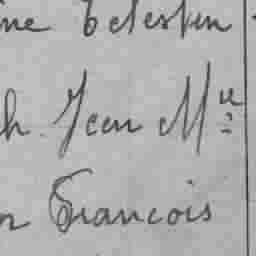 ne Celestin
h Jean M^ie
n Francois